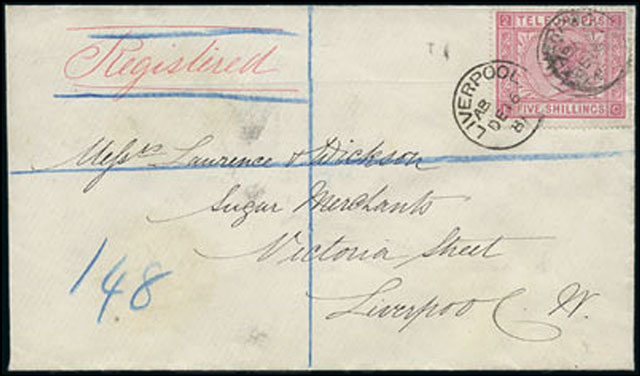 TELEGRAPHS
2
FIVE SHILLINGS
LIVERPOOL
AB
DE 16
81
Registered
Messrs Laurence & Dickson
Sugar Merchants
Victoria Street
Liverpool W.
148